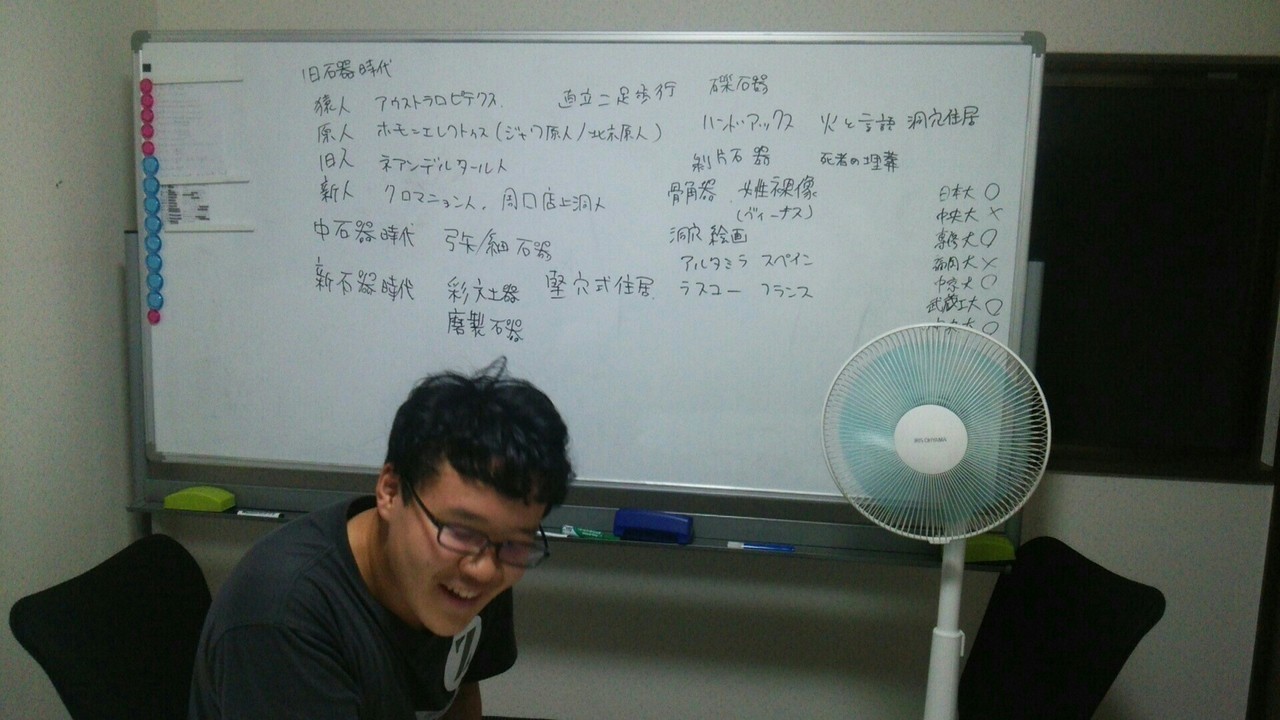 旧石器時代
猿人 アウストラロピテクス. 直立二足歩行 礫石器
原人 ホモ=エレクトゥス(ジャワ原人/北京原人) ハンド・アックス 火と言語 洞穴住居
旧人 ネアンデルタール人 剝片石器 死者の埋葬
新人 クロマニョン人, 周口店上洞人 骨角器 女性裸像
(ヴィーナス)
中石器時代 弓矢/細石器 洞穴絵画
アルタミラ スペイン
新石器時代 彩文土器 竪穴式住居 ラスコー フランス
磨製石器
日本大 ○
中央大 ×
専修大 ○
福岡大 ×
中京大 ○
武蔵工大 ○
大 ○
IRIS OHYAMA